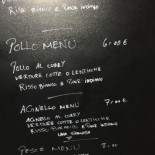 Riso Bianco e Pane indiano
Pollo Menu 6,00 €
Pollo al curry
Verdure cotte o lenticchie
Riso Bianco e Pane indiano
Agnello Menu 7,00 €
Agnello al curry
Verdure cotte o lenticchie
Riso Bianco e Pane indiano
Pesce Menu